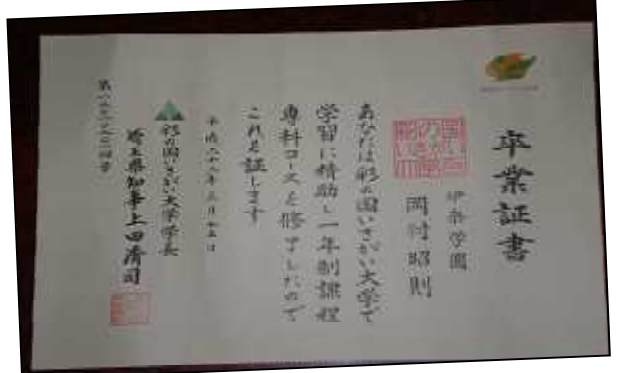 卒業証書
伊奈学園
岡村昭則
あなたは彩の国いきがい大学で
学習に精励し一年制課程
専科コースを修了したので
これを証します
平成二十八年三月十五日
彩の国いきがい大学学長
埼玉県知事上田清司